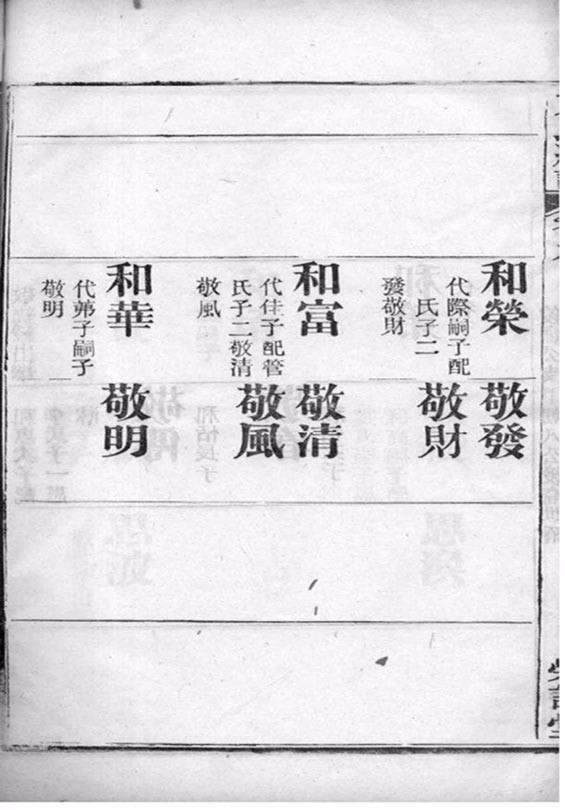 和榮
代際嗣子配
氏子二
發敬財
敬發
敬財
和富
代佳子配管
氏子二敬清
敬風
敬清
敬風
和華
代弟子嗣子
敬明
敬明